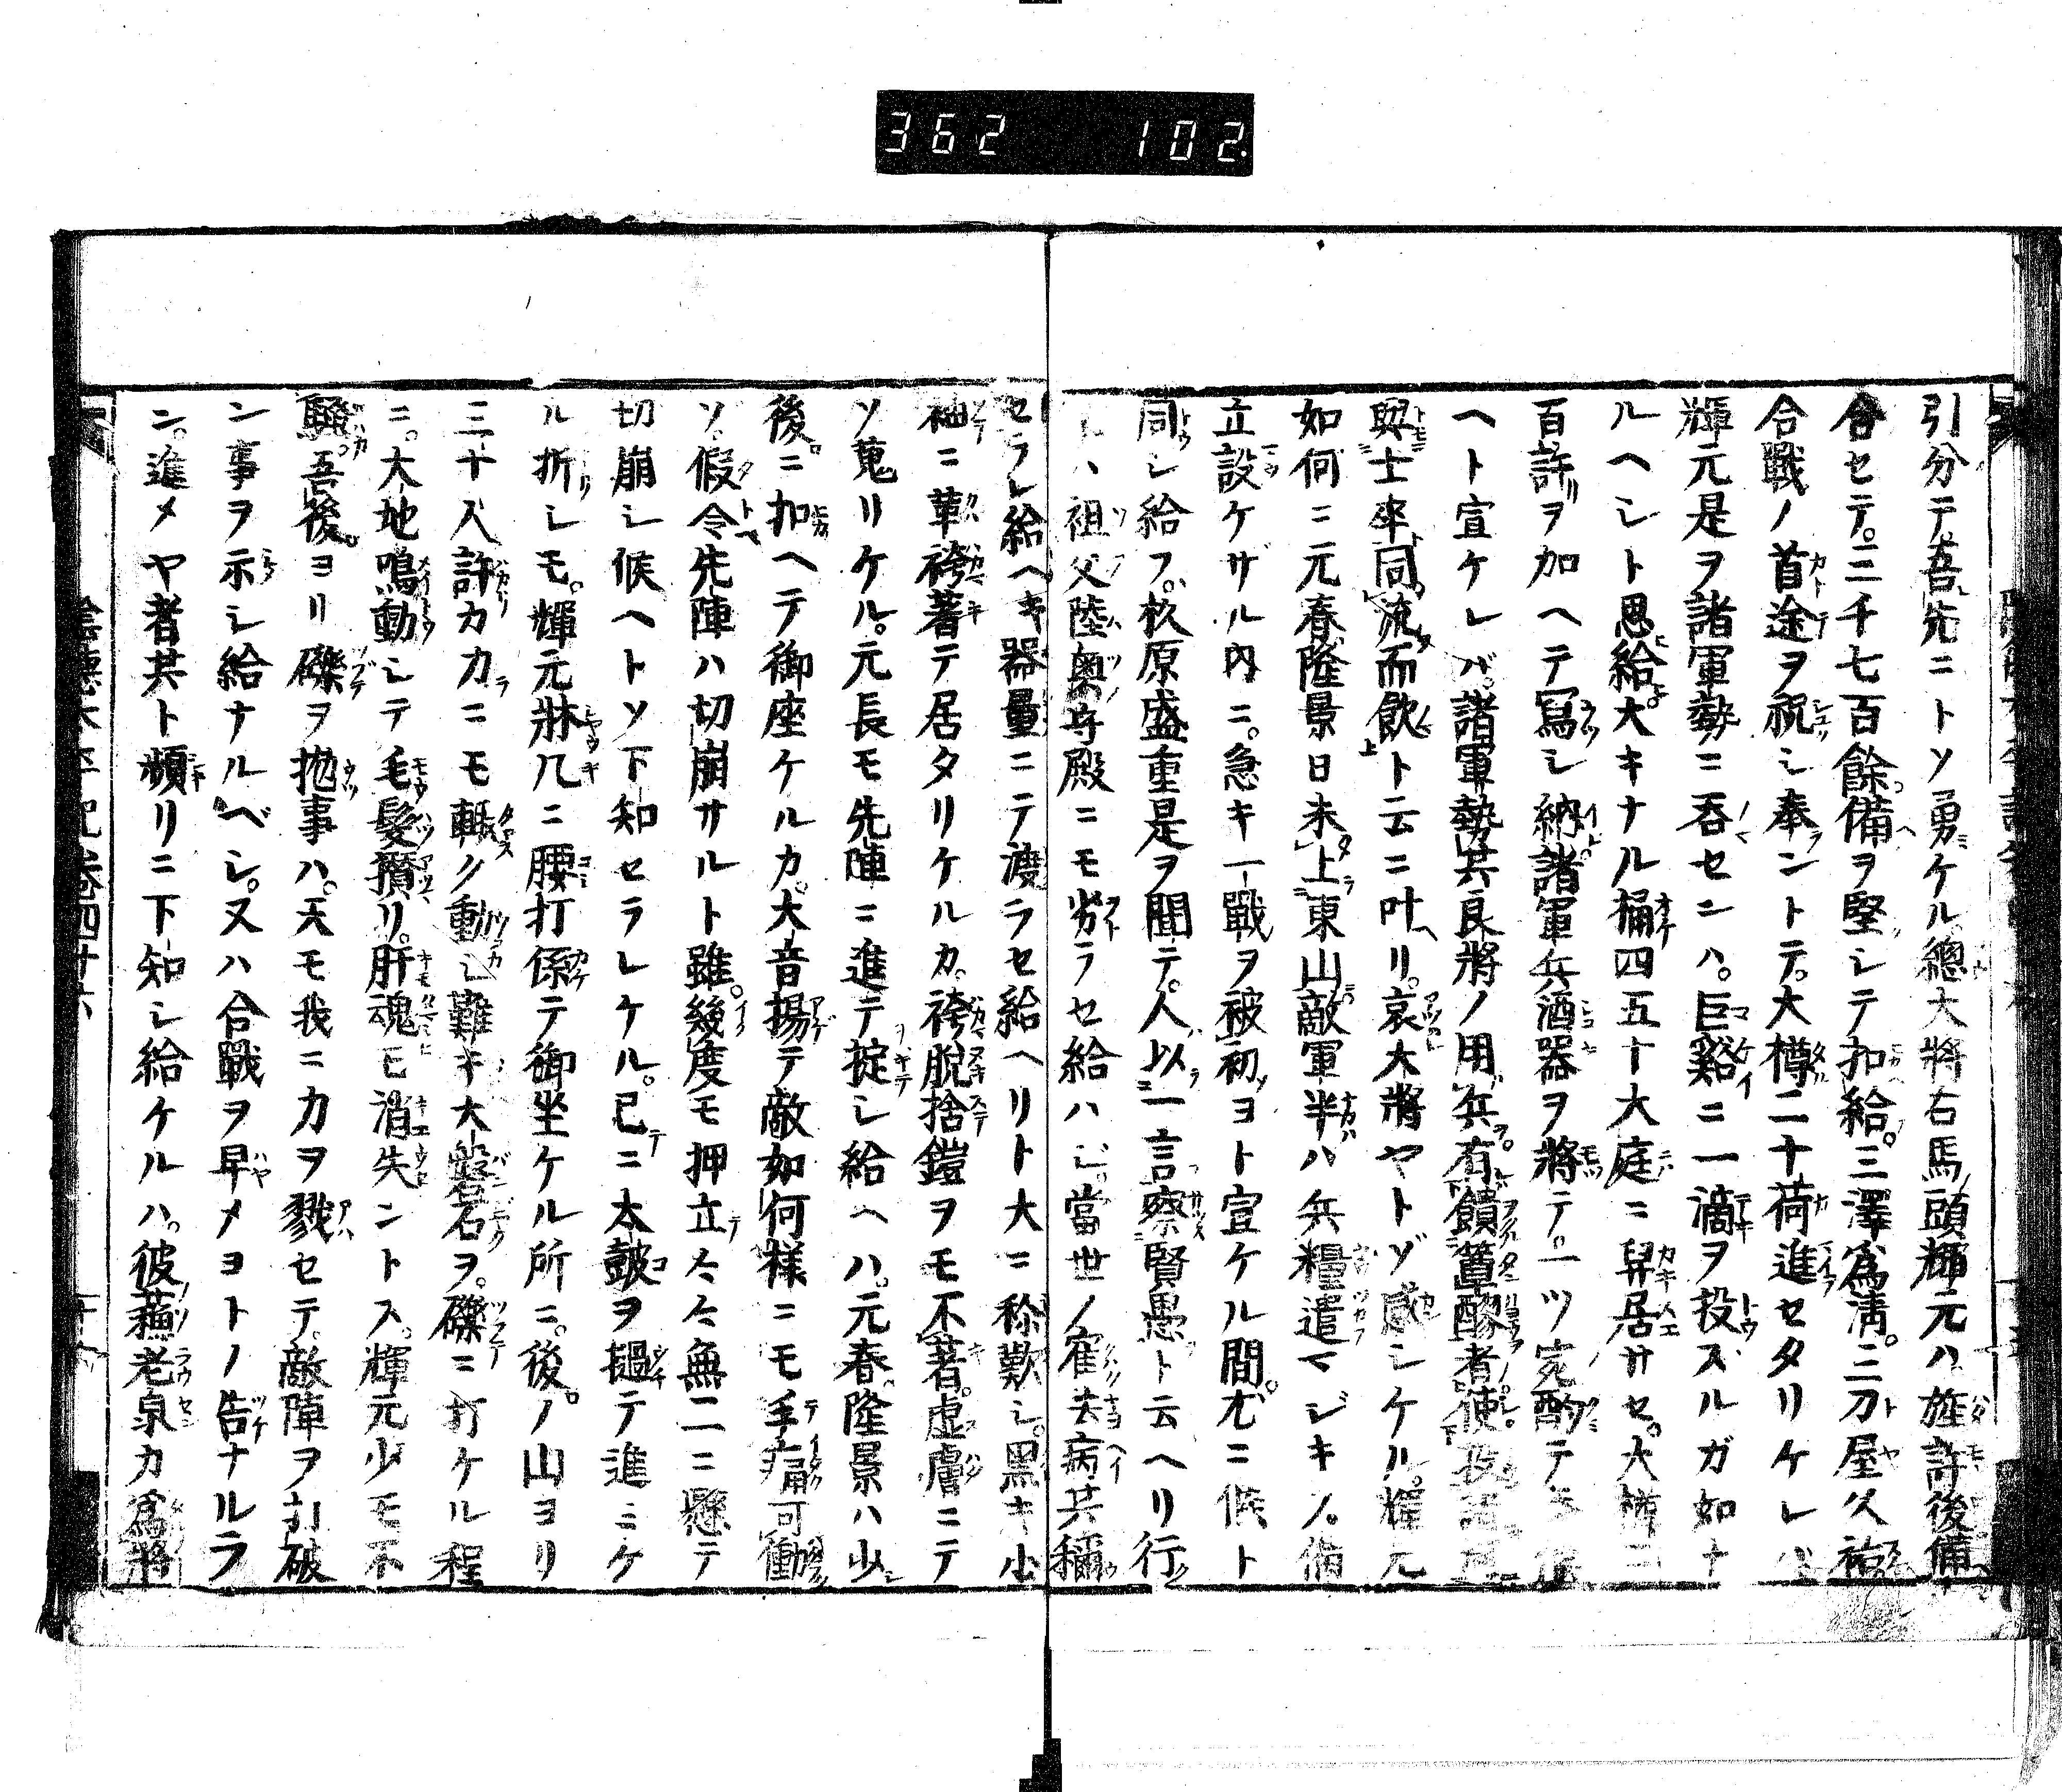 362 102
引分テ。吾先ニトソ勇ケル總大將右馬頭輝元ハ旌許後備
合セテ。三千七百餘備ヲ堅シテ扣給。三澤爲淸。三刀屋久祐
合戰ノ首途ヲ祝シ奉ントテ。大樽二十荷進セタリケレバ
輝元是ヲ諸軍勢ニ呑センハ。巨谿ニ一滴ヲ投ズルガ如ナ
ルヘシト思給大キナル桶四五十大庭ニ舁居サセ。大樽二
百許ヲ加ヘテ寫シ納諸軍兵酒器ヲ將テ。一ツ宛酌テ
ヘト宣ケレバ。諸軍勢共良將ノ用兵有饋簞醪者使投
與士卒同流而飮ト云ニ叶ヘリ。哀大將ヤトゾ感シケル。輝元
如何ニ元春隆景日未上東山敵軍半ハ兵糧遣マジキソ。備
立設ケザル内ニ。急キ一戰ヲ被初ヨト宣ケル間。尤ニ候ト
同シ給フ。杉原盛重是ヲ聞テ。人以一言察賢愚ト云ヘリ行
ハ祖父陸奥守殿ニモ劣ラセ給ハジ。當世ノ霍去病共稱
セラレ給ヘキ器量ニテ渡ラセ給ヘリト大ニ稱歎シ。黑キ小
袖ニ革袴著テ居タリケルカ。袴脫捨鎧ヲモ不著。虛膚ニテ
ソ蒐リケル。元長モ先陣ニ進テ掟シ給ヘハ。元春隆景ハ少
後ニ扣ヘテ御座ケルカ。大音揚テ敵如何樣ニモ手痛可働
ソ。假令先陣ハ切崩サルト雖。幾度モ押立々々無二ニ懸テ
切崩シ候ヘトソ下知セラレケル。已ニ太鼓ヲ撾テ進ミケ
ル折シモ。輝元牀几ニ腰打係テ御坐ケル所ニ。後ノ山ヨリ
三十人許カカニモ輙ク動シ難キ大磐石ヲ。礫ニ打ケル程
ニ。大地鳴動シテ毛髮攢リ。肝魂モ消失ントス。輝元少モ不
騷。吾後ヨリ礫ヲ抛事ハ。天モ我ニカヲ戮セテ。敵陣ヲ打破
ン事ヲ示シ給ナルベシ。又ハ合戰ヲ早メヨトノ告ナルラ
ン。進メヤ者共ト頻リニ下知シ給ケルハ。彼蘓老泉カ爲將
陰德太平記卷四十六